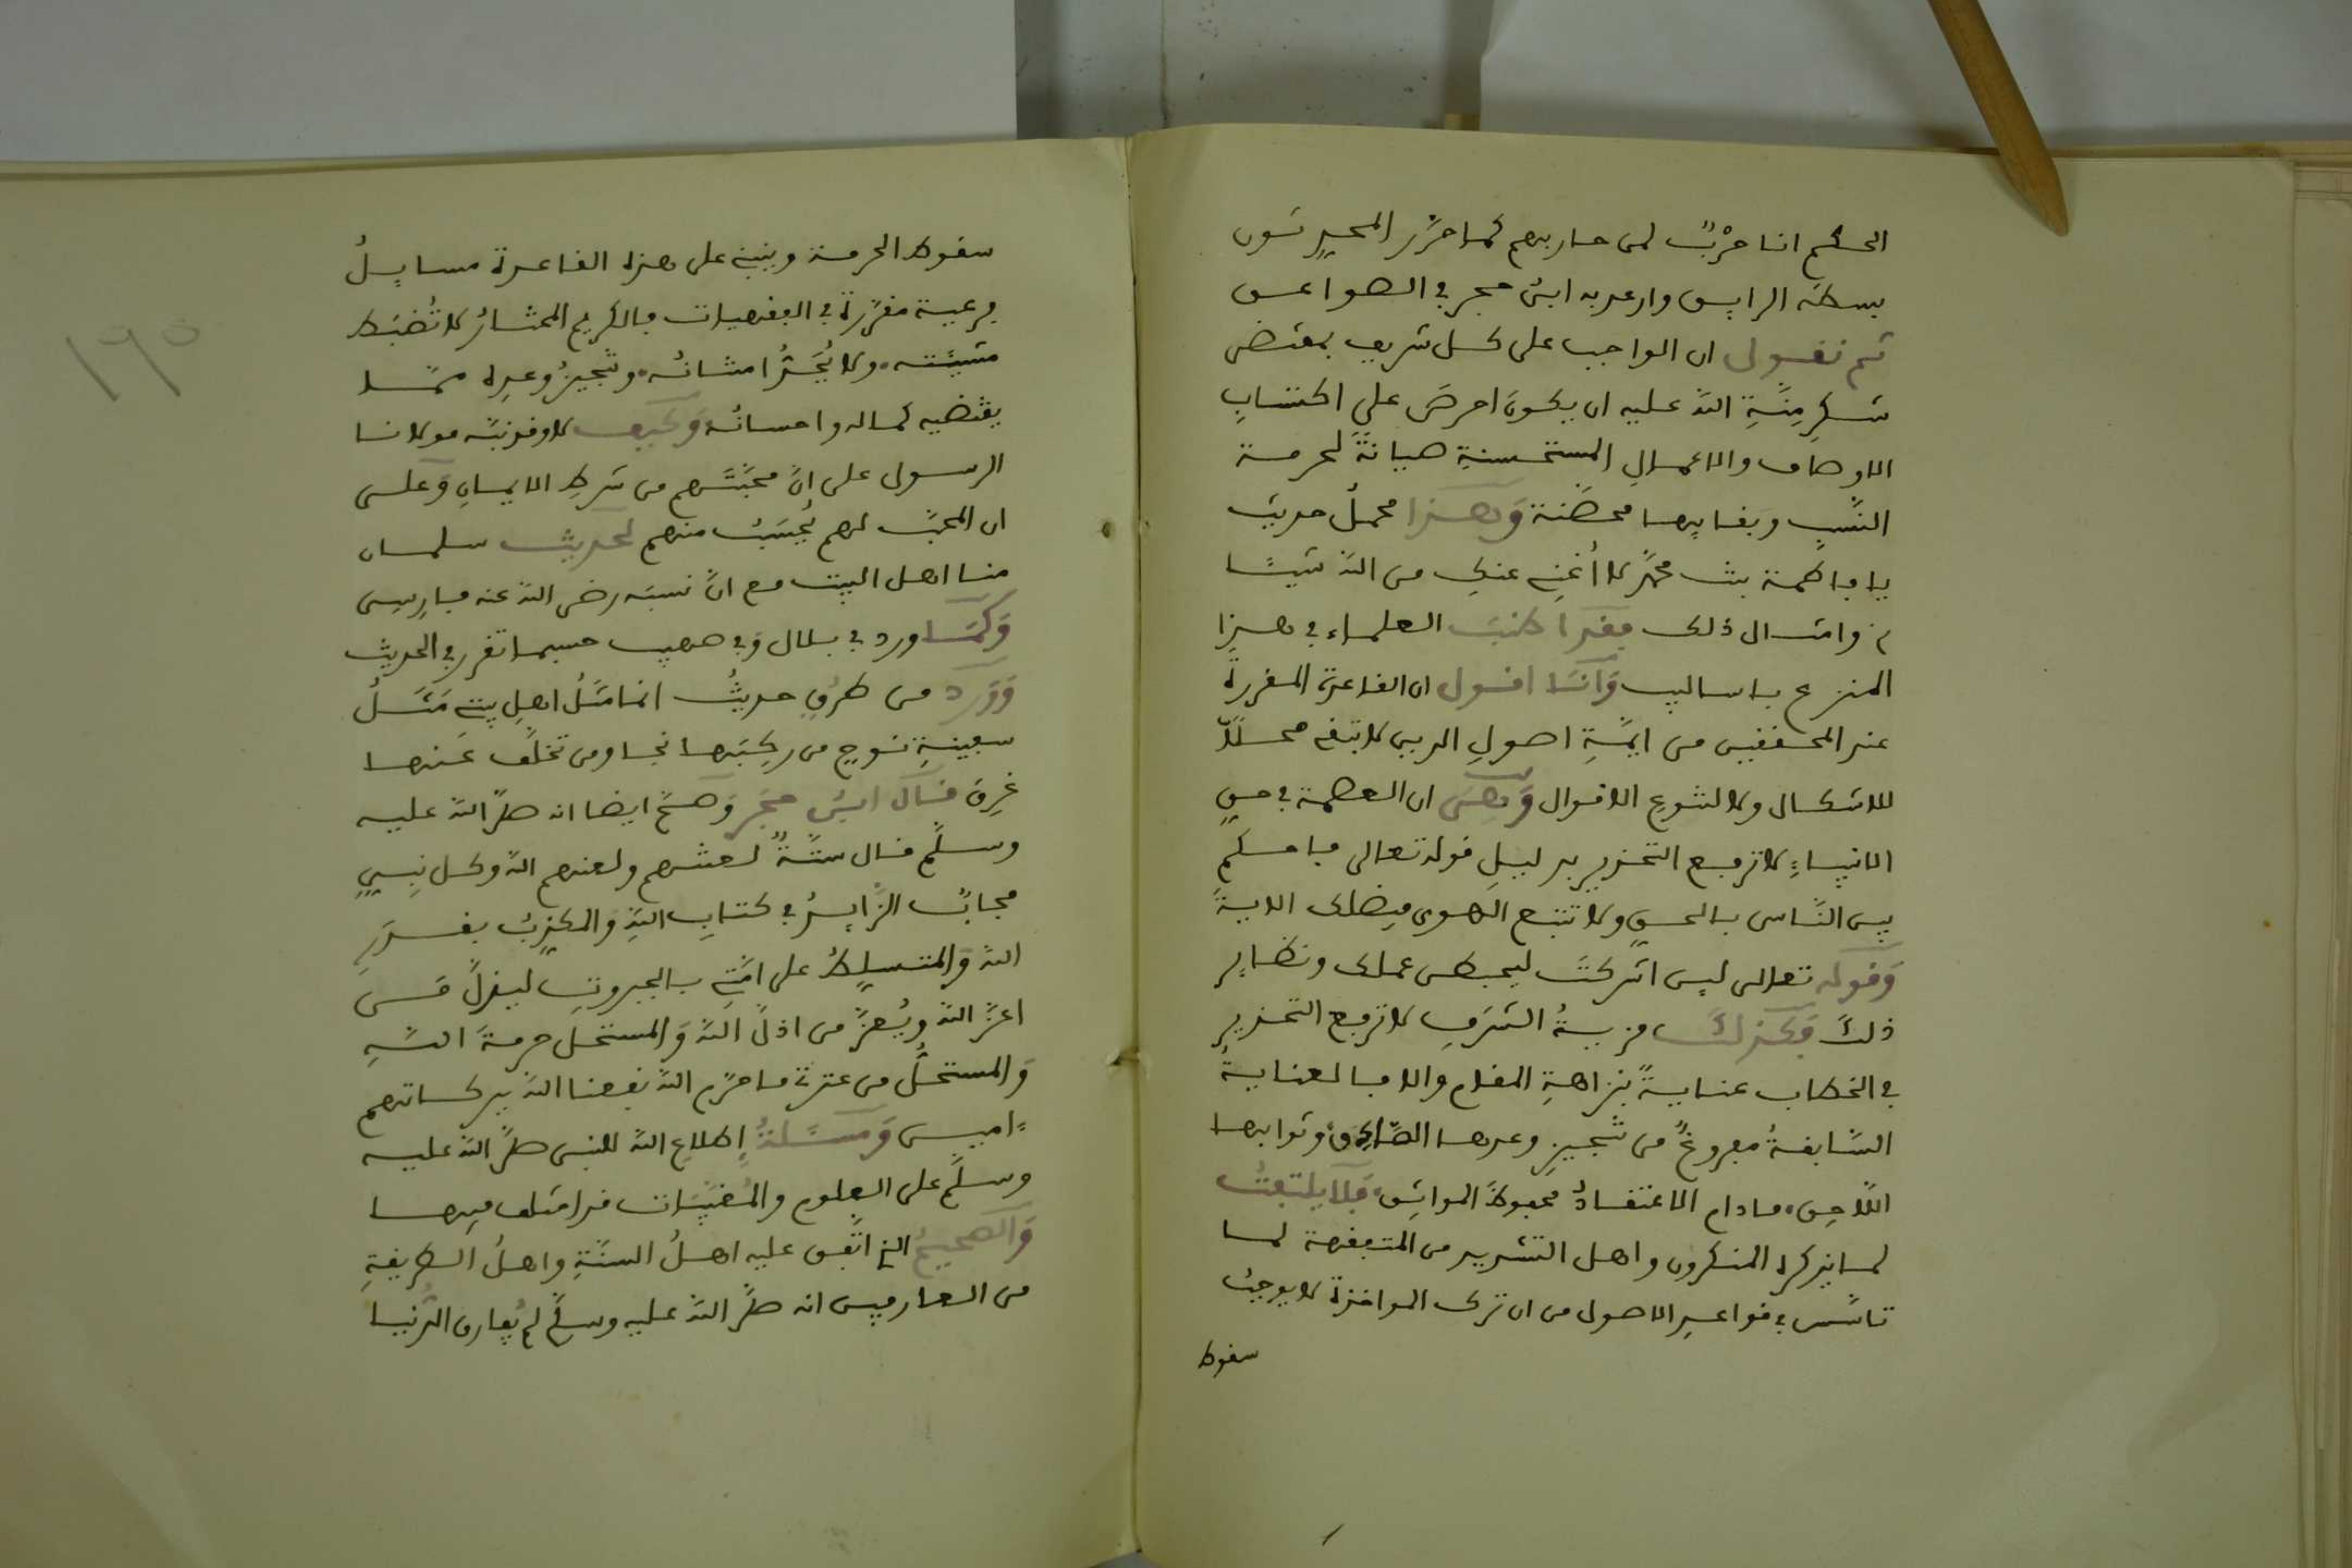 الحكم انا حَرْبٌ لمن حاربهم كما حرّر المحيدثون
بسطه الرايس وارعد به ابن حجر في الصواعق
ثم نقول ان الواجب على كل شريف بمقتضى
شكرِ مِنَّةِ الله عليه ان يكونَ احرصَ على اكتسابِ
الاوصاف والاعمالِ المستحسنةِ صيانةً لحرمة
النَّسب وبقايها محصّنة وَهـذا محملُ حديث
يا فاطمة بنت محمّد لا أُغني عنكِ من الله شيئًا
وامثال ذلك فقد اطنبَ العلماء في هذا
المنزع باساليب وَانـَا اقول ان القاعدة المقررةَ
عند المحققين من ايمَّةِ اصولِ الدين لا تبقي محلًّا
للاشكال ولا لتنوع الاقوال وَهِيَ ان العصمة في حقِ
الانبياءِ لا ترفع التحذير بدليلِ قوله تعالى فاحكم
بين النَّاس بالحقِ ولا تتبع الهوى فيضلك الايةَ
وَقوله تعالى لين اشركتَ ليحبطن عملك ونظاير
ذلكَ فَكذلكَ مزيةُ الشَرَفِ لا ترفع التحذير
في الخطاب عنايةً بنزاهةِ المقام والا فالعنايةُ
السَّابقةُ مفروغٌ من تنجيزِ وعدها الصَّادِق وثوابها
اللَّاحِق، ما دام الاعتقادُ محفوظَ المواثِق، فَلا يلتفتُ
لما يذكره المنكرون واهل التشديد من المتفقهة لما
تاسَّس في قواعدِ الاصول من ان ترك المواخذة لا يوجبُ
سقوط
سقوط الحرمة وينبني على هذه القاعدة مسايلُ
فرعية مقرّرة في الفقهيات فالكريم المختارُ لا تُضبَط
مشيّته، ولا يُحجَّرُ امتنانُه، وتنجيزُ وعدِه ممّا
يقتضيه كماله واحسانُه وَكيف لا وقد نبّه مولانا
الرسول على انَّ محبَّتَهم من شرطِ الايمانِ وَعلى
ان المحبَّ لهم يُحسَبُ منهم لحديث سلمان
منا اهل البيت مع انَّ نسبَه رضي الله عنه فارِسِي
وَكمَـا ورد في بلال وَفي صهيب حسبما تقرر في الحديث
وَوَرد من طرُقٍ حديثُ انما مَثَلُ اهلِ بيتي مَثَـلُ
سفينةِ نوحٍ من ركِبَها نجا ومن تخلَّف عَنها
غرِقَ قـال ابنُ حجَر وَصحَّ ايضا انه صلّى الله عليه
وسلَّم قال ستَّةٌ لعنتهم ولعنهم الله وكل نبِيٍ
مجابٌ الزَّايدُ في كتابِ اللهِ والمكذِّبُ بقـدَرِ
الله وَالمتسلِّطُ على امَّتي بالجبروتِ ليذلَّ مَـن
اعزَّ الله ويُعزَّ من اذلَّ اللهُ وَالمستحل حرمةَ اللـهِ
وَالمستحلُّ من عترتي ما حرّم الله نفعنا الله ببركاتهم
ءامين وَمسـَلةُ إطلاعِ الله للنبي صلَّى الله عليه
وسلَّم على العلوم والمُغيَّبات قد اختلف فيها
وَالصحيحُ الذي اتَّفق عليه اهـلُ السنَّةِ واهلُ الطريقةِ
من العارفين انه صلَّى الله عليه وسلَّم لم يُفارق الدُّنيا
١٦٥